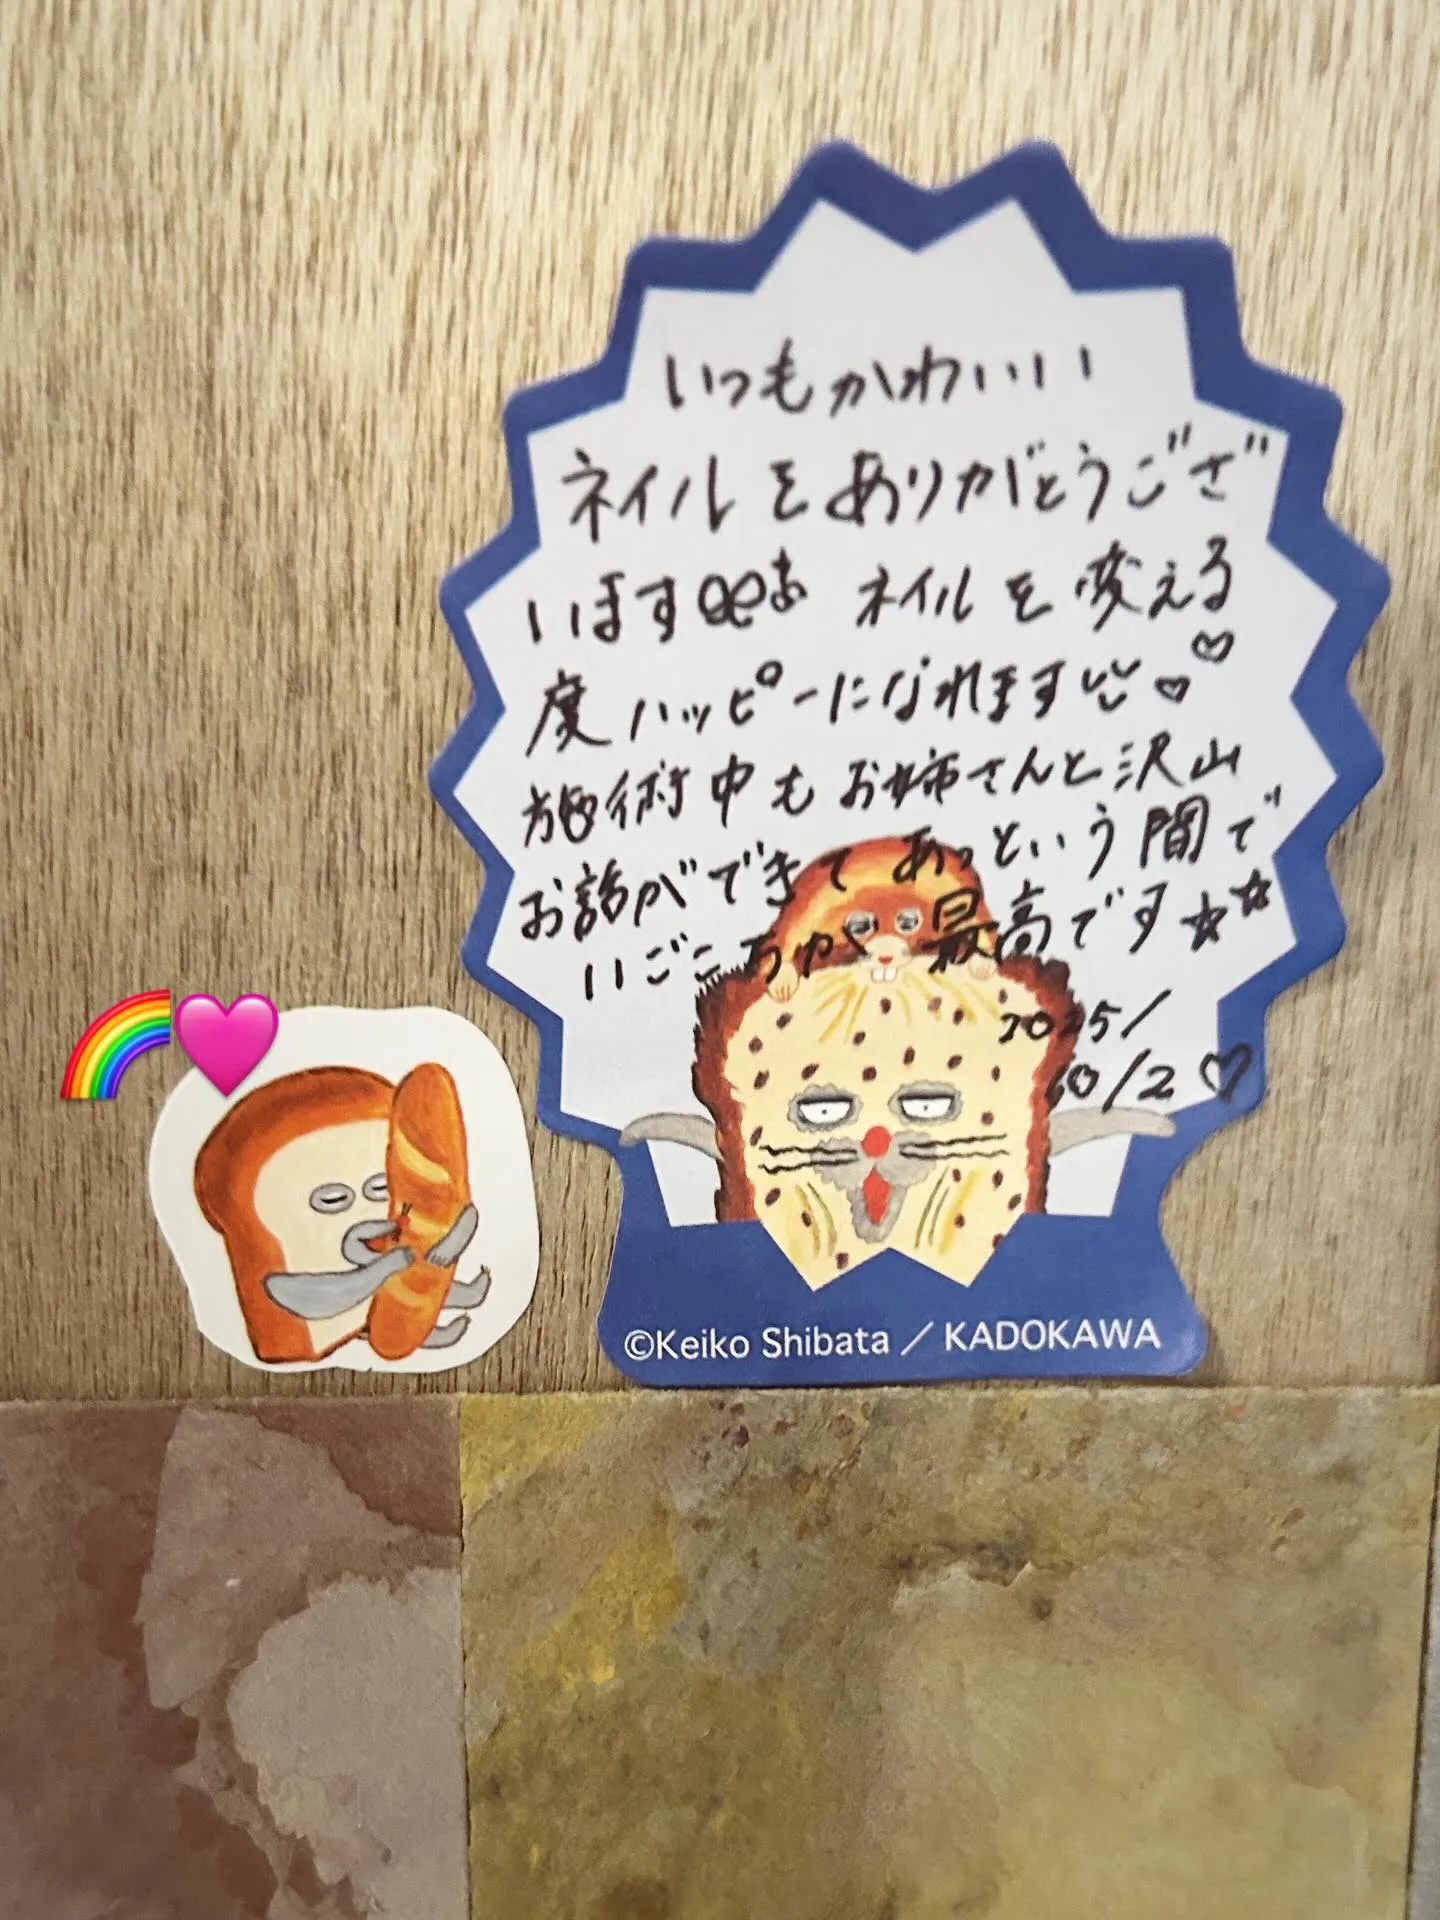 いつもかわいい
ネイルをありがとうござ
います ネイルを変える
度ハッピーになれます♡♡
施術中もお姉さんと沢山
お話ができて あっという間で
いごこちが 最高です☆☆
2025/
10/2♡
©Keiko Shibata／KADOKAWA